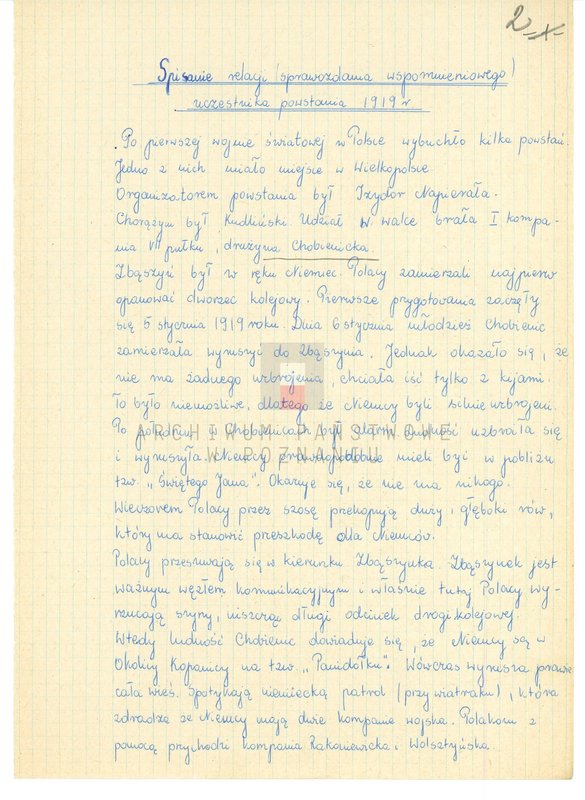 2
Spisanie relacji (sprawozdania wspomnieniowego)
uczestnika powstania 1919 r
Po pierwszej wojnie światowej w Polsce wybuchło kilka powstań.
Jedno z nich miało miejsce w Wielkopolsce
Organizatorem powstania był Izydor Napierała.
Chorążym był Kudliński. Udział w walce brała I kompa-
nia VII pułku, drużyna Chobienicka.
Zbąszyń był w ręku Niemiec. Polacy zamierzali najpierw
opanować dworzec kolejowy. Pierwsze przygotowania zaczęły
się 5 stycznia 1919 roku. Dnia 6 stycznia młodzież Chobienic
zamierzała wyruszyć do Zbąszynia. Jednak okazało się, że
nie ma żadnego uzbrojenia, chciała iść tylko z kijami
To było niemożliwe, dlatego że Niemcy byli silnie uzbrojeni.
Po południu w Chobienicach był alarm ludność uzbrаiła się
i wyruszyła Niemcy prawdopodobnie mieli być w pobliżu
tzw. "Świętego Jana". Okazuje się, że nie ma nikogo.
Wieczorem Polacy przez szosę przekopują duży i głęboki rów,
który ma stanowić przeszkodę dla Niemców.
Polacy przesuwają się w kierunku Zbąszynka. Zbąszynek jest
ważnym węzłem komunikacyjnym i właśnie tutaj Polacy wy-
rzucają szyny, niszcząc długi odcinek drogi kolejowej.
Wtedy ludność Chobienic dowiaduje się, że Niemcy są w
Okolicy Kopanicy na tzw. "Paniołku". Wówczas wyrusza prawie
cała wieś. Spotykają niemiecką patrol (przy wiatraku), która
zdradza że Niemcy mają dwie kompanie wojska. Polakom z
pomocą przychodzi kompania Rakoniewicka i Wolsztyńska.
ARCHIWUM PAŃSTWOWE
W POZNANIU